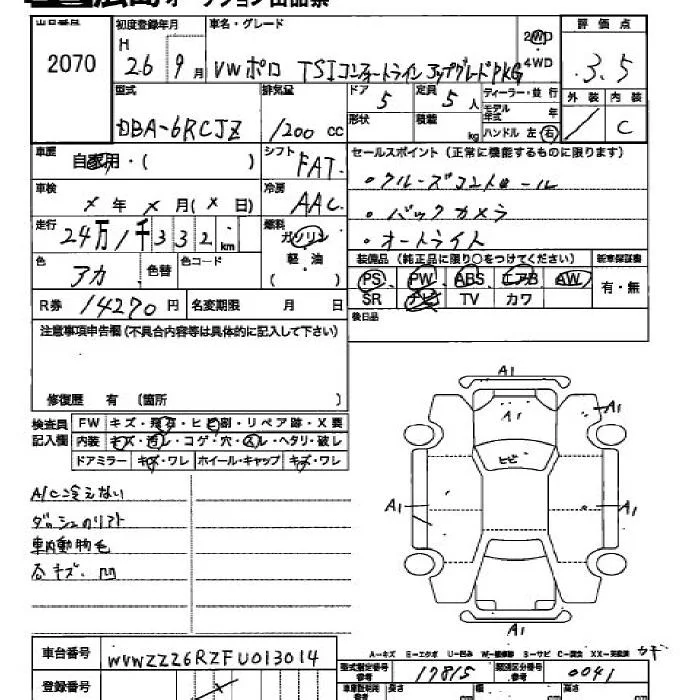 広島 オークション出品票
出品番号 2070
初度登録年月 H 26 9月
車名・グレード VW ポロ TSIコンフォートラインアップグレードPKG
2WD 4WD
評価点 3.5
外装 内装 C
型式 DBA-6RCJZ
排気量 1200 cc
ドア 5 定員 5人
形状 積載 kg
ディーラー・並行
モデル年式 年
ハンドル 左・右
車歴 自家用・( )
シフト FAT
車検 × 年 × 月(× 日)
冷房 AAC
走行 24万1千332 km
燃料 ガソリン 軽・油 ( )
色 アカ 色替 色コード
R券 14270円 名変期限 月 日
セールスポイント(正常に機能するものに限ります)
・クルーズコントロール
・バックカメラ
・オートライト
装備品(純正品に限り○をつけてください) 新車保証書
PS PW ABS エアB AW 有・無
SR ナビ TV カワ
後日品
注意事項申告欄(不具合内容等は具体的に記入して下さい)
修復歴 有 (箇所 )
検査員記入欄
FW キズ・飛石・ヒビ割・リペア跡・X要
内装 キズ・汚レ・コゲ・穴・スレ・ヘタリ・破レ
ドアミラー キズ・ワレ ホイール・キャップ キズ・ワレ
A/C冷えない
ダッシュのリフト
車内動物毛
各キズ.凹
A1
A1
A1
ヒビ
A1
A1
A1
車台番号 WVWZZZ6RZFU013014
登録番号
A-キズ E-エクボ U-凹み W-補修跡 S-サビ C-腐食 XX-交換済 カギ
型式指定番号 参考 17815 類別区分番号 参考 0041
長さ 幅 高さ